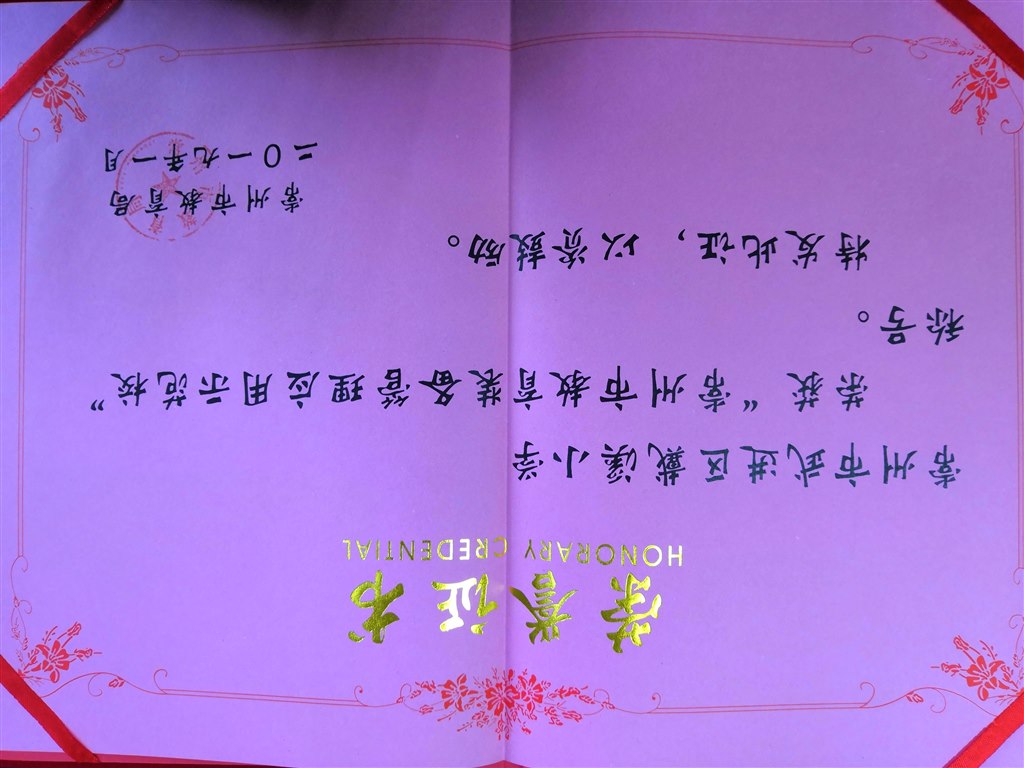 荣誉证书
HONORARY CREDENTIAL
常州市武进区戴溪小学
荣获“常州市教育装备管理应用示范校”
称号。
特发此证，以资鼓励。
常州市教育局
二〇一九年一月